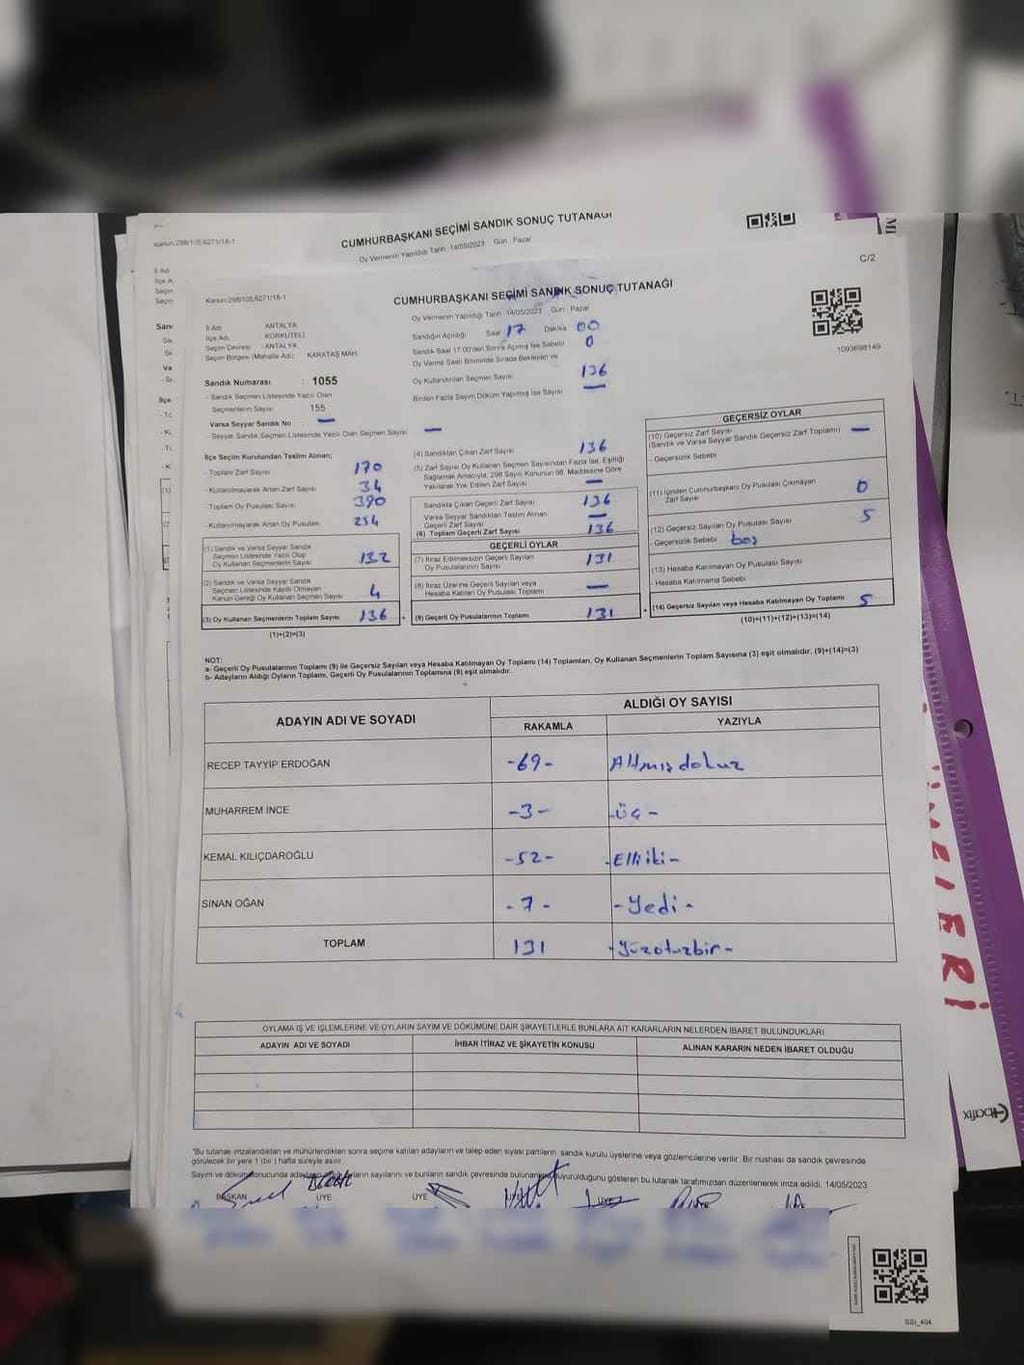 CUMHURBAŞKANI SEÇİMİ SANDIK SONUÇ TUTANAĞI
Kanun:298/105,6271/18-1
Oy Vermenin Yapıldığı Tarih :14/05/2023 Gün : Pazar
C/2
Kanun:298/105,6271/18-1
CUMHURBAŞKANI SEÇİMİ SANDIK SONUÇ TUTANAĞI
Oy Vermenin Yapıldığı Tarih :14/05/2023 Gün : Pazar
1093698149
İl Adı : ANTALYA
İlçe Adı : KORKUTELİ
Seçim Çevresi : ANTALYA
Seçim Bölgesi (Mahalle Adı) : KARATAŞ MAH.
Sandık Numarası : 1055
- Sandık Seçmen Listesinde Yazılı Olan
Seçmenlerin Sayısı 155
Varsa Seyyar Sandık No —
- Seyyar Sandık Seçmen Listesinde Yazılı Olan Seçmen Sayısı —
Sandığın Açıldığı Saat 17 Dakika 00
Sandık Saat 17.00'den Sonra Açılmış İse Sebebi 0
Oy Verme Saati Bitiminde Sırada Bekleyen ve
Oy Kullandırılan Seçmen Sayısı 136
Birden Fazla Sayım Döküm Yapılmış İse Sayısı —
İlçe Seçim Kurulundan Teslim Alınan;
- Toplam Zarf Sayısı 170
- Kullanılmayarak Artan Zarf Sayısı 34
- Toplam Oy Pusulası Sayısı 390
- Kullanılmayarak Artan Oy Pusulası 254
(1) Sandık ve Varsa Seyyar Sandık
Seçmen Listesinde Yazılı Olup
Oy Kullanan Seçmenlerin Sayısı 132
(2) Sandık ve Varsa Seyyar Sandık
Seçmen Listesinde Kayıtlı Olmayan
Kanun Gereği Oy Kullanan Seçmen Sayısı 4
(3) Oy Kullanan Seçmenlerin Toplam Sayısı 136
(1)+(2)=(3)
(4) Sandıktan Çıkan Zarf Sayısı 136
(5) Zarf Sayısı Oy Kullanan Seçmen Sayısından Fazla İse, Eşitliği
Sağlamak Amacıyla; 298 Sayılı Kanunun 98. Maddesine Göre
Yakılarak Yok Edilen Zarf Sayısı —
Sandıkta Çıkan Geçerli Zarf Sayısı 136
Varsa Seyyar Sandıktan Teslim Alınan
Geçerli Zarf Sayısı —
(6) Toplam Geçerli Zarf Sayısı 136
GEÇERLİ OYLAR
(7) İtiraz Edilmeksizin Geçerli Sayılan
Oy Pusulasının Sayısı 131
(8) İtiraz Üzerine Geçerli Sayılan veya
Hesaba Katılan Oy Pusulası Toplamı —
(9) Geçerli Oy Pusulalarının Toplamı 131
GEÇERSİZ OYLAR
(10) Geçersiz Zarf Sayısı
(Sandık ve Varsa Seyyar Sandık Geçersiz Zarf Toplamı) —
- Geçersizlik Sebebi
(11) İçinden Cumhurbaşkanı Oy Pusulası Çıkmayan
Zarf Sayısı 0
(12) Geçersiz Sayılan Oy Pusulası Sayısı 5
- Geçersizlik Sebebi boş
(13) Hesaba Katılmayan Oy Pusulası Sayısı
- Hesaba Katılmama Sebebi
(14) Geçersiz Sayılan veya Hesaba Katılmayan Oy Toplamı 5
(10)+(11)+(12)+(13)=(14)
NOT:
a- Geçerli Oy Pusulalarının Toplamı (9) ile Geçersiz Sayılan veya Hesaba Katılmayan Oy Toplamı (14) Toplamları, Oy Kullanan Seçmenlerin Toplam Sayısına (3) eşit olmalıdır. (9)+(14)=(3)
b- Adayların Aldığı Oyların Toplamı, Geçerli Oy Pusulalarının Toplamına (9) eşit olmalıdır.
ADAYIN ADI VE SOYADI
ALDIĞI OY SAYISI
RAKAMLA YAZIYLA
RECEP TAYYIP ERDOĞAN -69- Altmışdokuz
MUHARREM İNCE -3- -üç-
KEMAL KILIÇDAROĞLU -52- -Elliiki-
SİNAN OĞAN -7- -Yedi-
TOPLAM 131 -Yüzotuzbir-
OYLAMA İŞ VE İŞLEMLERİNE VE OYLARIN SAYIM VE DÖKÜMÜNE DAİR ŞİKAYETLERLE BUNLARA AİT KARARLARIN NELERDEN İBARET BULUNDUKLARI
ADAYIN ADI VE SOYADI İHBAR İTİRAZ VE ŞİKAYETİN KONUSU ALINAN KARARIN NEDEN İBARET OLDUĞU
"Bu tutanak imzalandıktan ve mühürlendikten sonra seçime katılan adayların ve talep eden siyasi partilerin, sandık kurulu üyelerine veya gözlemcilerine verilir. Bir nüshası da sandık çevresinde
görülecek bir yere 1 (bir) hafta süreyle asılır.
Sayım ve döküm sonucunda adayların aldığı oyların sayılarını ve bunların sandık çevresinde bulunanlara duyurulduğunu gösteren bu tutanak tarafımızdan düzenlenerek imza edildi. 14/05/2023
BAŞKAN ÜYE ÜYE ÜYE
SSI_404